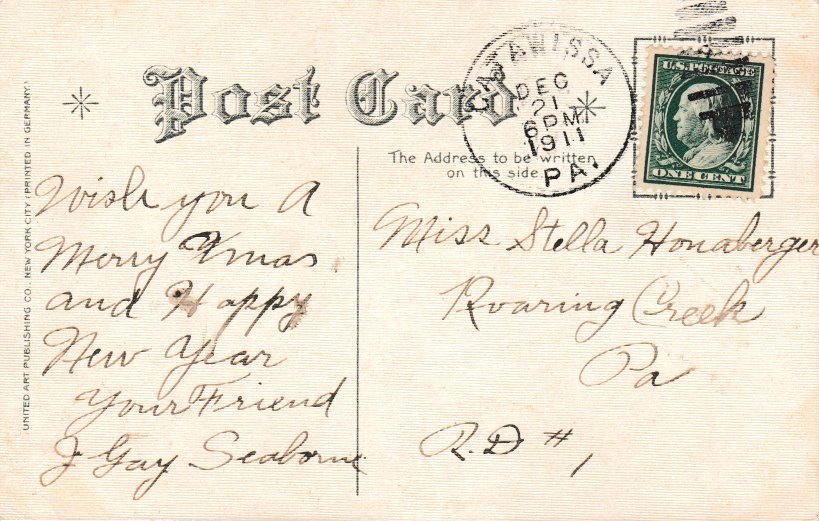 Post Card
CATAWISSA
DEC
21
6 PM
1911
PA.
U.S. POSTAGE
ONE CENT
The Address to be written
on this side.
UNITED ART PUBLISHING CO. NEW YORK CITY (PRINTED IN GERMANY)
Wish you A
Merry Xmas
and Happy
New Year
Your Friend
J Gay Seaborne
Miss Stella Honaberger
Roaring Creek
Pa
R.D #1